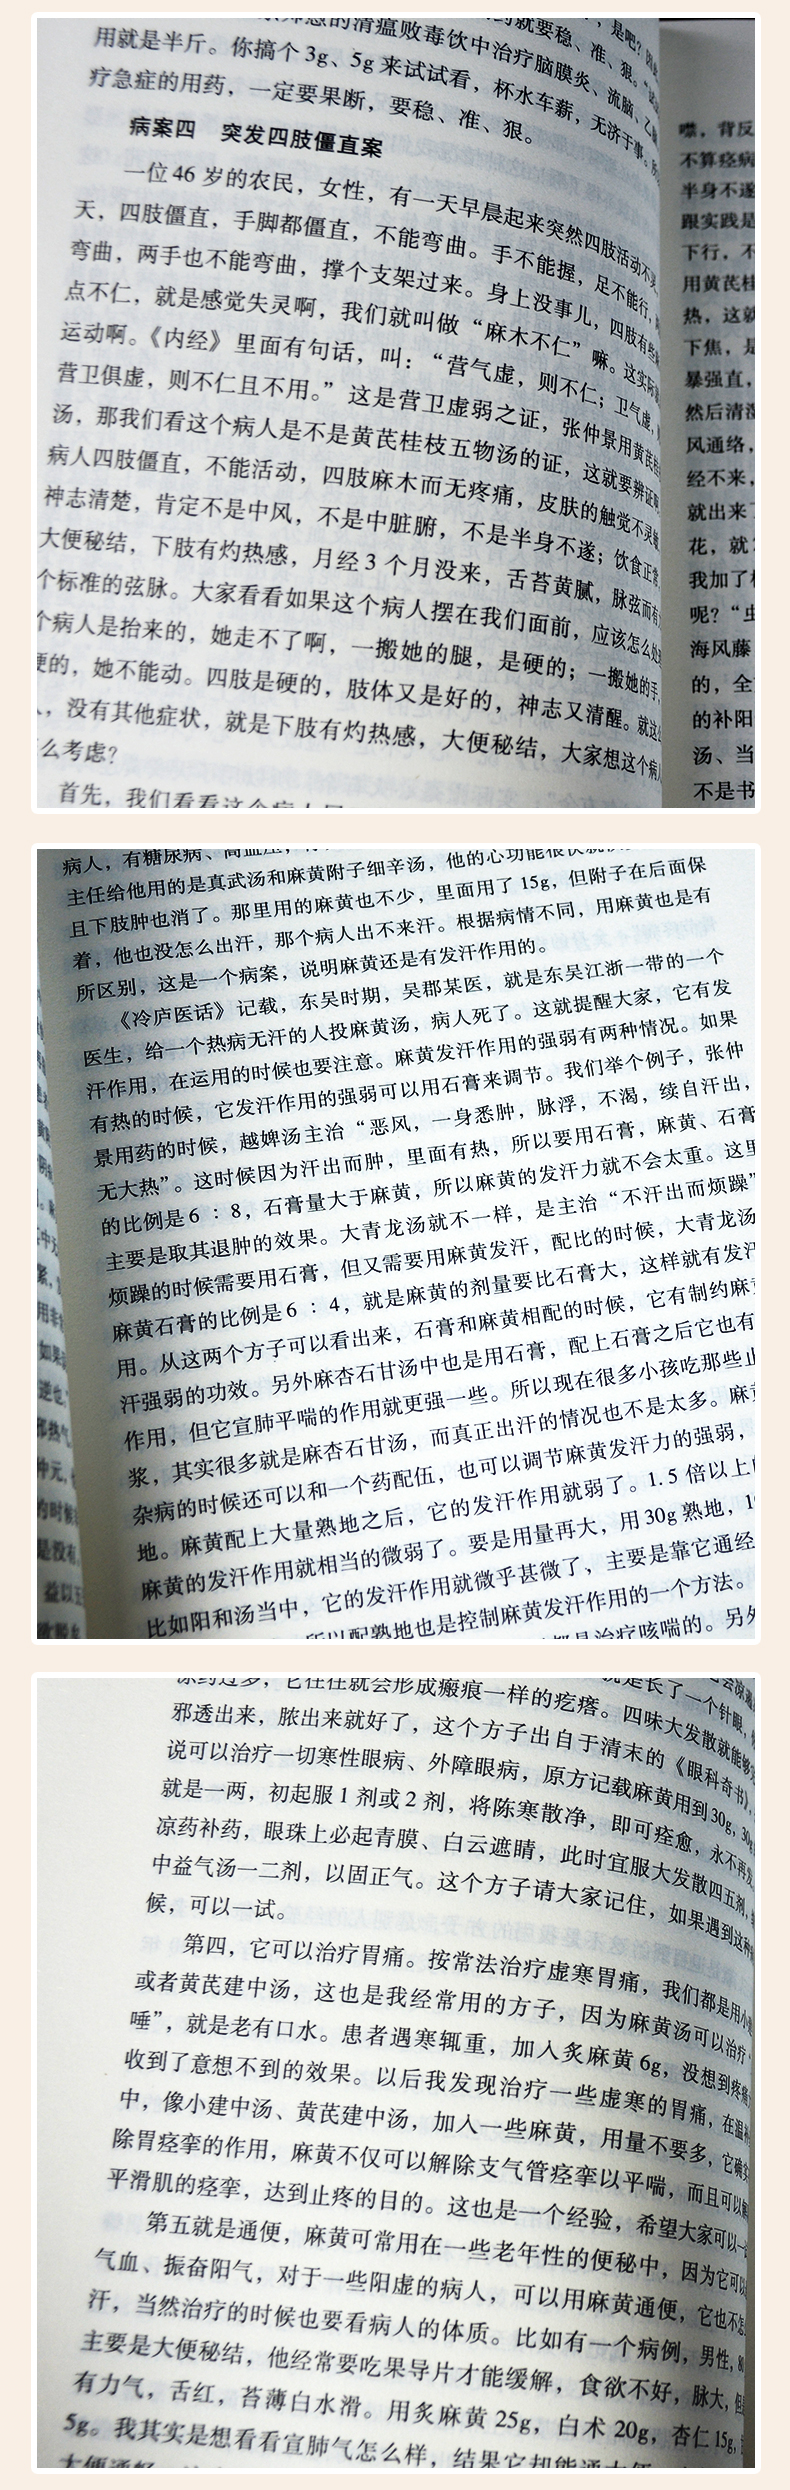 的清瘟败毒饮中治疗脑膜炎、流脑、乙
用就是半斤。你搞个3g、5g来试试看，杯水车薪，无济于事。
疗急症的用药，一定要果断，要稳、准、狠。
病案四 突发四肢僵直案
一位46岁的农民，女性，有一天早晨起来突然四肢活动不
天，四肢僵直，手脚都僵直，不能弯曲。手不能握，足不能行，
弯曲，两手也不能弯曲，撑个支架过来。身上没事儿，四肢有些
点不仁，就是感觉失灵啊，我们就叫做“麻木不仁”嘛。这实际
运动啊。《内经》里面有句话，叫：“营气虚，则不仁；卫气虚，
营卫俱虚，则不仁且不用。”这是营卫虚弱之证，张仲景用黄芪桂
汤，那我们看这个病人是不是黄芪桂枝五物汤的证，这就要辨证
病人四肢僵直，不能活动，四肢麻木而无疼痛，皮肤的触觉不灵
神志清楚，肯定不是中风，不是中脏腑，不是半身不遂；饮食正常
大便秘结，下肢有灼热感，月经3个月没来，舌苔黄腻，脉弦而有
个标准的弦脉。大家看看如果这个病人摆在我们面前，应该怎么处
个病人是抬来的，她走不了啊，一搬她的腿，是硬的；一搬她的手，
硬的，她不能动。四肢是硬的，肢体又是好的，神志又清醒。就这
，没有其他症状，就是下肢有灼热感，大便秘结，大家想这个病
么考虑？
首先，我们看看这个病人
噤，背反
不算痉病
半身不遂
跟实践是
下行，不
用黄芪桂
热，这就
下焦，是
暴强直，
然后清湿
风通络，
经不来，
就出来了
花，就
我加了
呢？“虫
海风藤
的，全
的补阳
汤、当
不是书
病人，有糖尿病、高血压，
主任给他用的是真武汤和麻黄附子细辛汤，他的心功能很快就
且下肢肿也消了。那里用的麻黄也不少，里面用了15g，但附子在后面保
着，他也没怎么出汗，那个病人出不来汗。根据病情不同，用麻黄也是有
所区别，这是一个病案，说明麻黄还是有发汗作用的。
《冷庐医话》记载，东吴时期，吴郡某医，就是东吴江浙一带的一个
医生，给一个热病无汗的人投麻黄汤，病人死了。这就提醒大家，它有发
汗作用，在运用的时候也要注意。麻黄发汗作用的强弱有两种情况。如果
有热的时候，它发汗作用的强弱可以用石膏来调节。我们举个例子，张仲
景用药的时候，越婢汤主治“恶风，一身悉肿，脉浮，不渴，续自汗出，
无大热”。这时候因为汗出而肿，里面有热，所以要用石膏，麻黄、石膏
的比例是6：8，石膏量大于麻黄，所以麻黄的发汗力就不会太重。这里
主要是取其退肿的效果。大青龙汤就不一样，是主治“不汗出而烦躁”
烦躁的时候需要用石膏，但又需要用麻黄发汗，配比的时候，大青龙汤
麻黄石膏的比例是6：4，就是麻黄的剂量要比石膏大，这样就有发汗
用。从这两个方子可以看出来，石膏和麻黄相配的时候，它有制约麻黄
汗强弱的功效。另外麻杏石甘汤中也是用石膏，配上石膏之后它也有
作用，但它宣肺平喘的作用就更强一些。所以现在很多小孩吃那些止
浆，其实很多就是麻杏石甘汤，而真正出汗的情况也不是太多。麻黄
杂病的时候还可以和一个药配伍，也可以调节麻黄发汗力的强弱，
地。麻黄配上大量熟地之后，它的发汗作用就弱了。1.5倍以上
麻黄的发汗作用就相当的微弱了。要是用量再大，用30g熟地，
比如阳和汤当中，它的发汗作用就微乎甚微了，主要是靠它通经
所以配熟地也是控制麻黄发汗作用的一个方法。
都是治疗咳喘的。另外
凉药过多，它往往就会形成瘢痕一样的疙瘩。四味大发散就能够
邪透出来，脓出来就好了，这个方子出自于清末的《眼科奇书》，
说可以治疗一切寒性眼病、外障眼病，原方记载麻黄用到30g，30g
就是一两，初起服1剂或2剂，将陈寒散净，即可痊愈，永不再发
凉药补药，眼珠上必起青膜、白云遮睛，此时宜服大发散四五剂，
中益气汤一二剂，以固正气。这个方子请大家记住，如果遇到这种
候，可以一试。
第四，它可以治疗胃痛。按常法治疗虚寒胃痛，我们都是用小
或者黄芪建中汤，这也是我经常用的方子，因为麻黄汤可以治疗“
唾”，就是老有口水。患者遇寒辄重，加入炙麻黄6g，没想到疼痛
收到了意想不到的效果。以后我发现治疗一些虚寒的胃痛，在温补
中，像小建中汤、黄芪建中汤，加入一些麻黄，用量不要多，它确实
除胃痉挛的作用，麻黄不仅可以解除支气管痉挛以平喘，而且可以解
平滑肌的痉挛，达到止疼的目的。这也是一个经验，希望大家可以一试
第五就是通便，麻黄可常用在一些老年性的便秘中，因为它可以
气血、振奋阳气，对于一些阳虚的病人，可以用麻黄通便，它也不怎
汗，当然治疗的时候也要看病人的体质。比如有一个病例，男性，80
主要是大便秘结，他经常要吃果导片才能缓解，食欲不好，脉大，但
有力气，舌红，苔薄白水滑。用炙麻黄25g，白术20g，杏仁15g，
5g。我其实是想看看宣肺气怎么样，结果它却能通大便